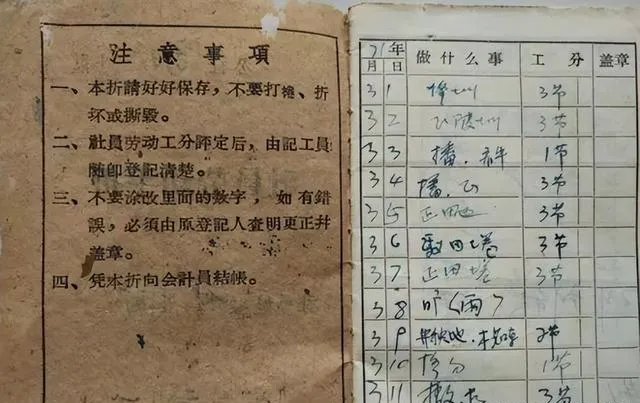 注意事項
一、本折請好好保存，不要打捲、折
坏或撕毁。
二、社員劳动工分評定后，由記工員
随即登記清楚。
三、不要涂改里面的数字，如有錯
誤，必須由原登記人查明更正幷
盖章。
四、凭本折向会計員結帳。
71年 做什么事 工分 盖章
月 日
3 1 3节
3 2 3节
3 3 播. 1节
3 4 播. 3节
3 5 正田 3节
3 6 田塔 3节
3 7 正田塔 3节
3 8 旷(雨)
3 9 2节
3 10 1节
3 11 3节